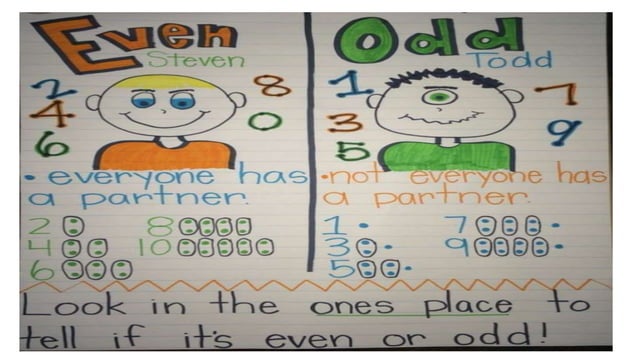 Even
Steven
2
8
4
0
6
• everyone has
a partner.
2
8
4
10
6
Odd
Todd
1
7
3
9
5
• not everyone has
a partner.
1
7
3
9
5
Look in the ones place to
tell if it's even or odd!